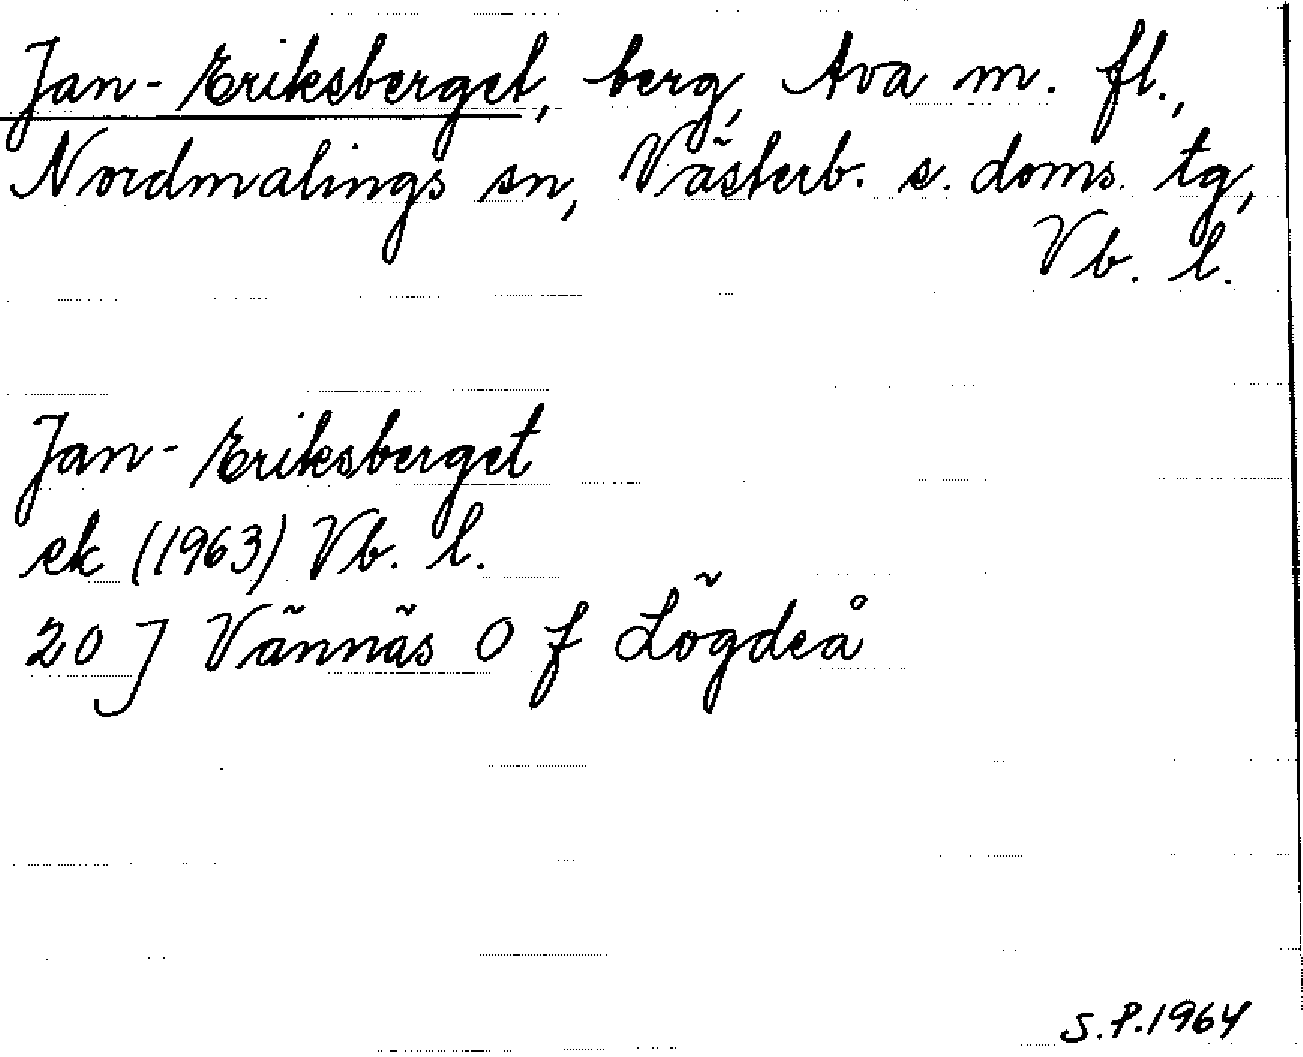 Jan-Eriksberget, berg, Ava m. fl.,
Nordmalings sn, Västerb. s. doms. tg,
Vb. l.
Jan-Eriksberget
ek (1963) Vb. l.
20 J Vännäs O f Lögdeå
S.P.1964